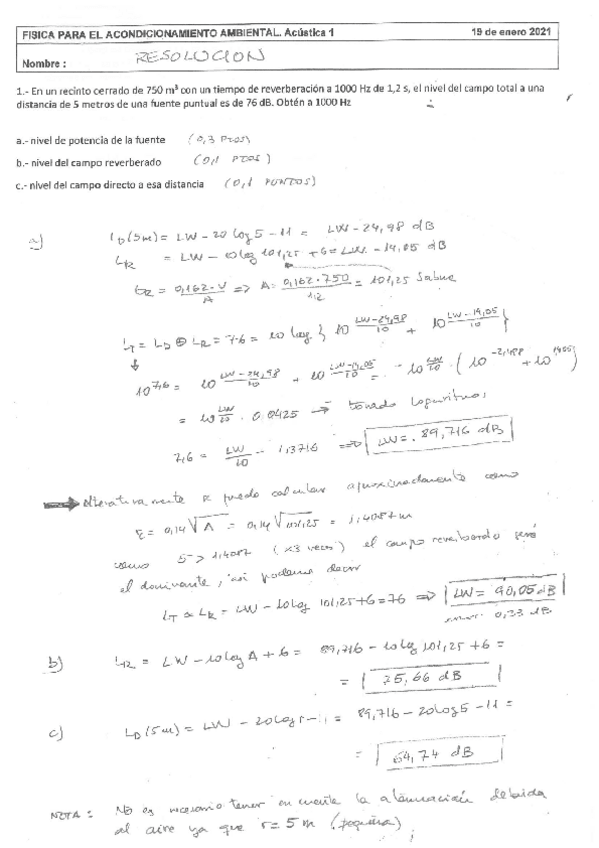 FISICA PARA EL ACONDICIONAMIENTO AMBIENTAL. Acústica 1 19 de enero 2021
Nombre : RESOLUCION
1.- En un recinto cerrado de 750 m³ con un tiempo de reverberación a 1000 Hz de 1,2 s, el nivel del campo total a una
distancia de 5 metros de una fuente puntual es de 76 dB. Obtén a 1000 Hz
a.- nivel de potencia de la fuente (0,3 PTOS)
b.- nivel del campo reverberado (0,1 PTOS)
c.- nivel del campo directo a esa distancia (0,1 PUNTOS)
a) L_D(5m) = LW - 20 log 5 - 11 = LW - 24,98 dB
L_R = LW - 10 log 101,25 + 6 = LW - 14,05 dB
t_R = 0,162·V/A => A = 0,162·750/1,2 = 101,25 Sabine
L_T = L_D ⊕ L_R = 76 = 10 log { 10^((LW-24,98)/10) + 10^((LW-14,05)/10) }
10^7,6 = 10^((LW-24,98)/10) + 10^((LW-14,05)/10) = 10^(LW/10) · (10^-2,498 + 10^-1,405)
= 10^(LW/10) · 0,0425 → tomando logaritmos,
7,6 = LW/10 - 1,3716 => LW = 89,716 dB
→ Alternativamente se puede calcular aproximadamente como
r = 0,14 √A = 0,14 √101,25 = 1,4087 m
como 5 > 1,4087 (x3 veces) el campo reverberado será
el dominante, así podemos decir
L_T ≈ L_R = LW - 10 log 101,25 + 6 = 76 => LW = 90,05 dB
error 0,33 dB
b) L_R = LW - 10 log A + 6 = 89,716 - 10 log 101,25 + 6 =
= 75,66 dB
c) L_D(5m) = LW - 20 log r - 11 = 89,716 - 20 log 5 - 11 =
= 64,74 dB
NOTA : No es necesario tener en cuenta la atenuación debida
al aire ya que r = 5 m (pequeña)